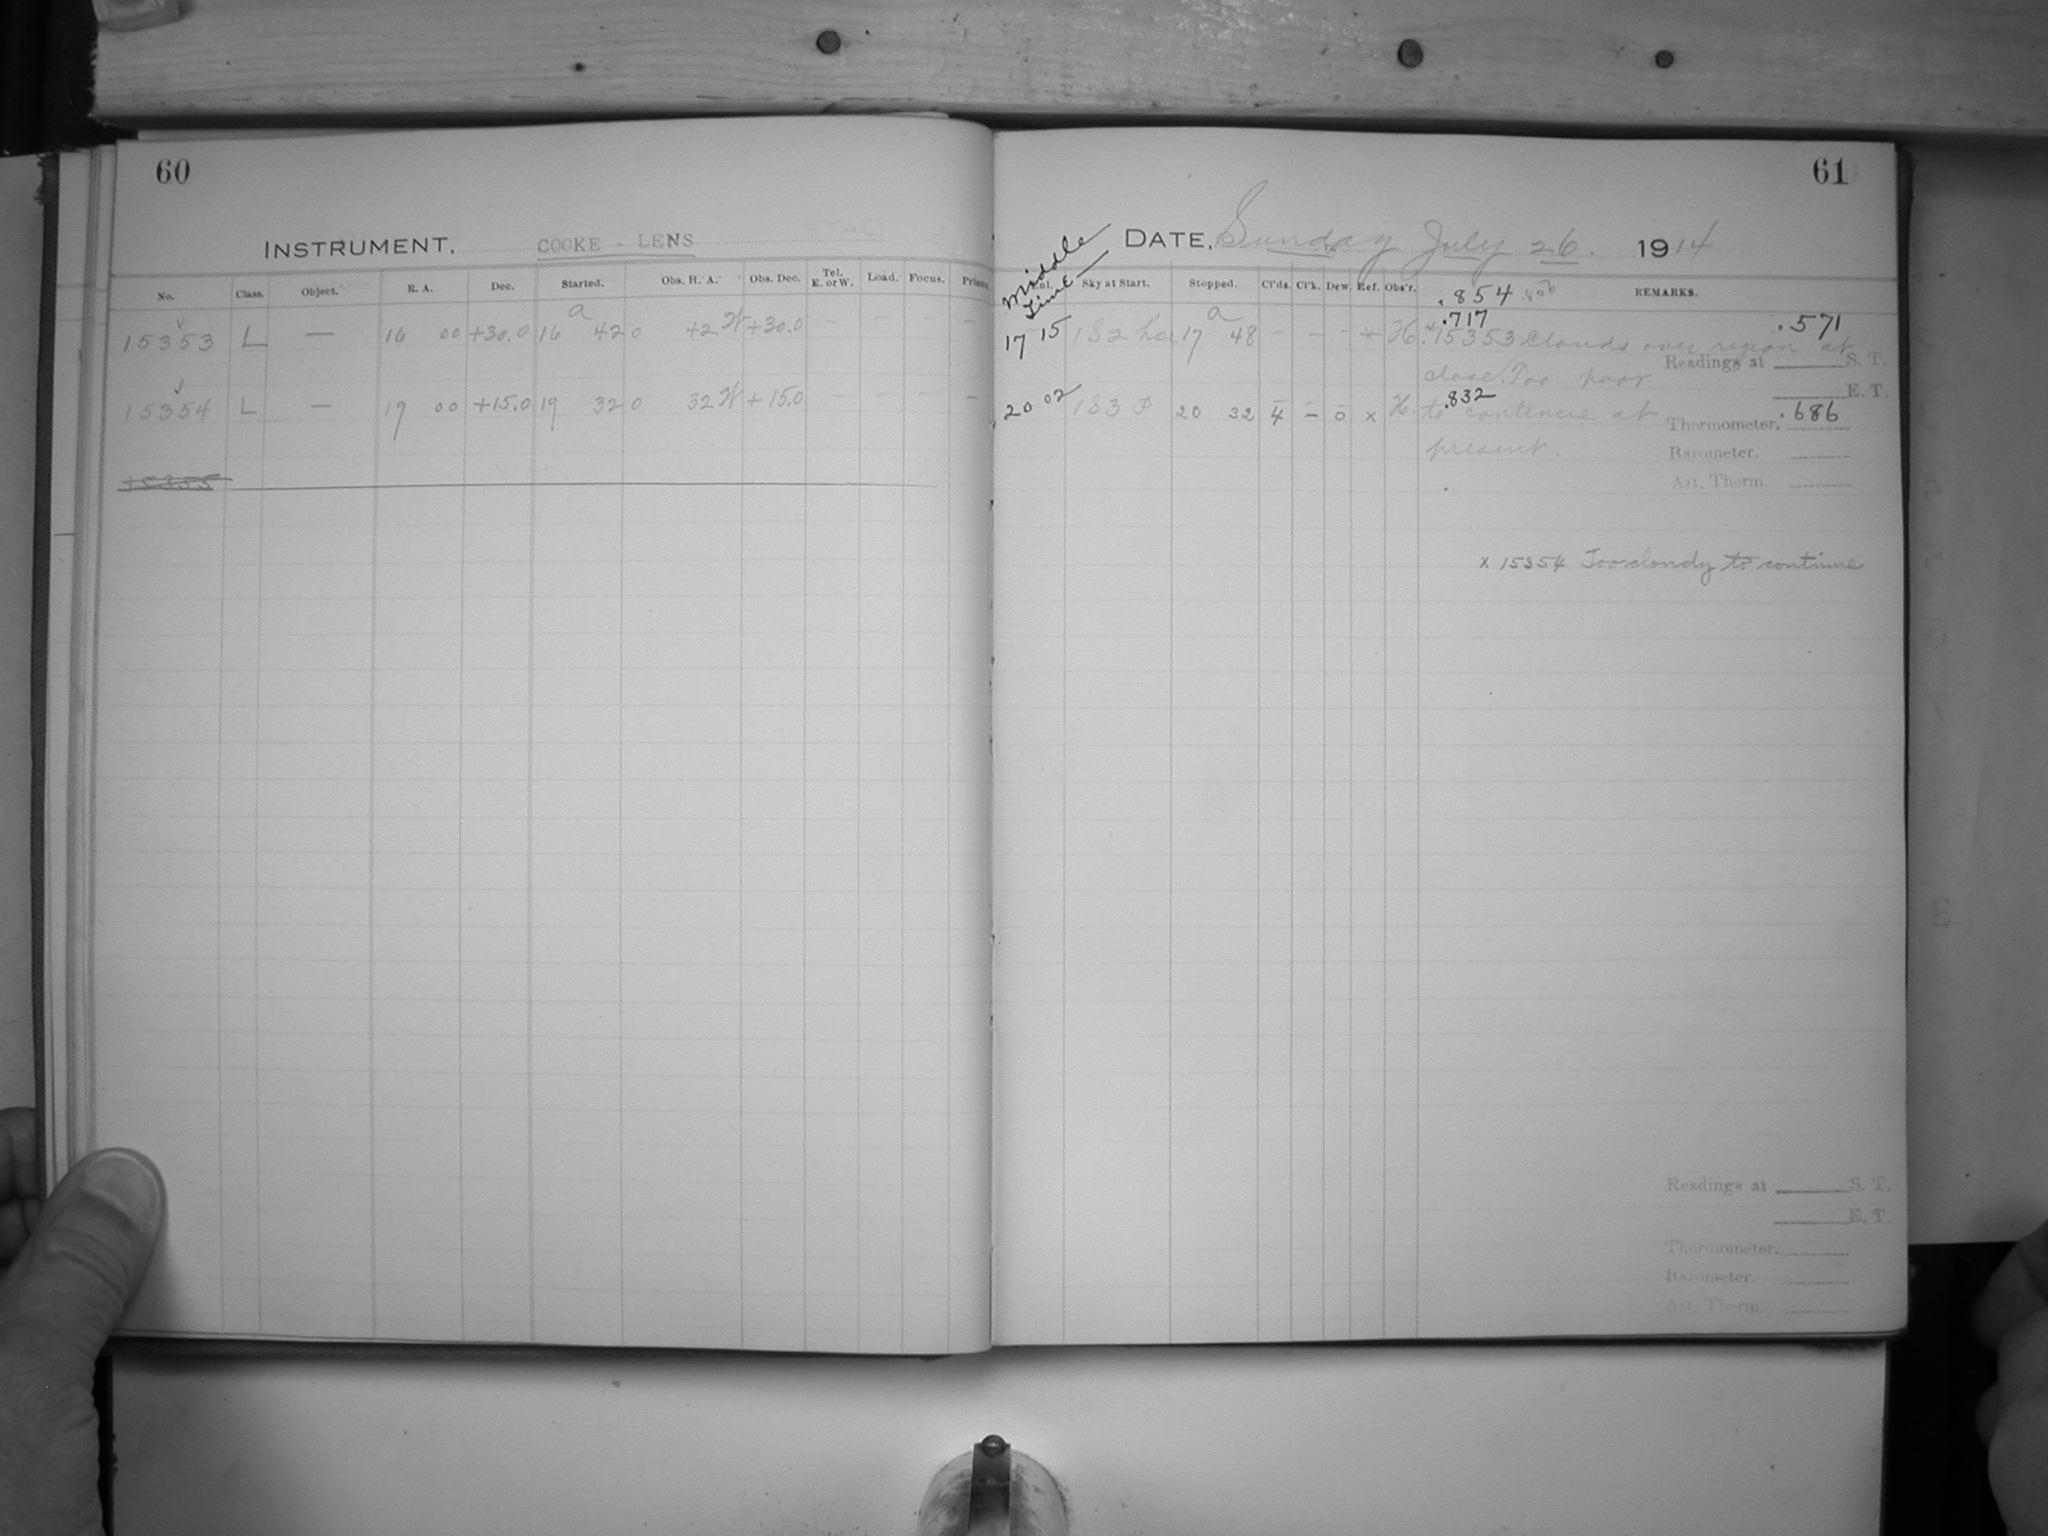 60
INSTRUMENT. COOKE - LENS
No. Class. Object. R. A. Dec. Started. Obs. H. A. Obs. Dec. Tel. E. or W. Load. Focus. Prism.
15353 L — 16 00 +30.0 16 a 42 0 +2 W +30.0 - - - -
15354 L — 19 00 +15.0 19 32 0 32 W +15.0 - - - -
15355
61
DATE, Sunday July 26. 1914
Middle Time
Sky at Start. Stopped. Cl'ds. Cl'k. Dew. Ref. Obs'r. .854 REMARKS.
17 15 182 17 a 48 - - - * H. .717 *15353 Clouds over region at .571
close. Too poor Readings at S. T.
E. T.
20 02 183 P 20 32 4 - 0 x H. .832 to continue at Thermometer. .686
present. Barometer.
Att. Therm.
x 15354 Too cloudy to continue
Readings at S. T.
E. T.
Thermometer.
Barometer.
Att. Therm.